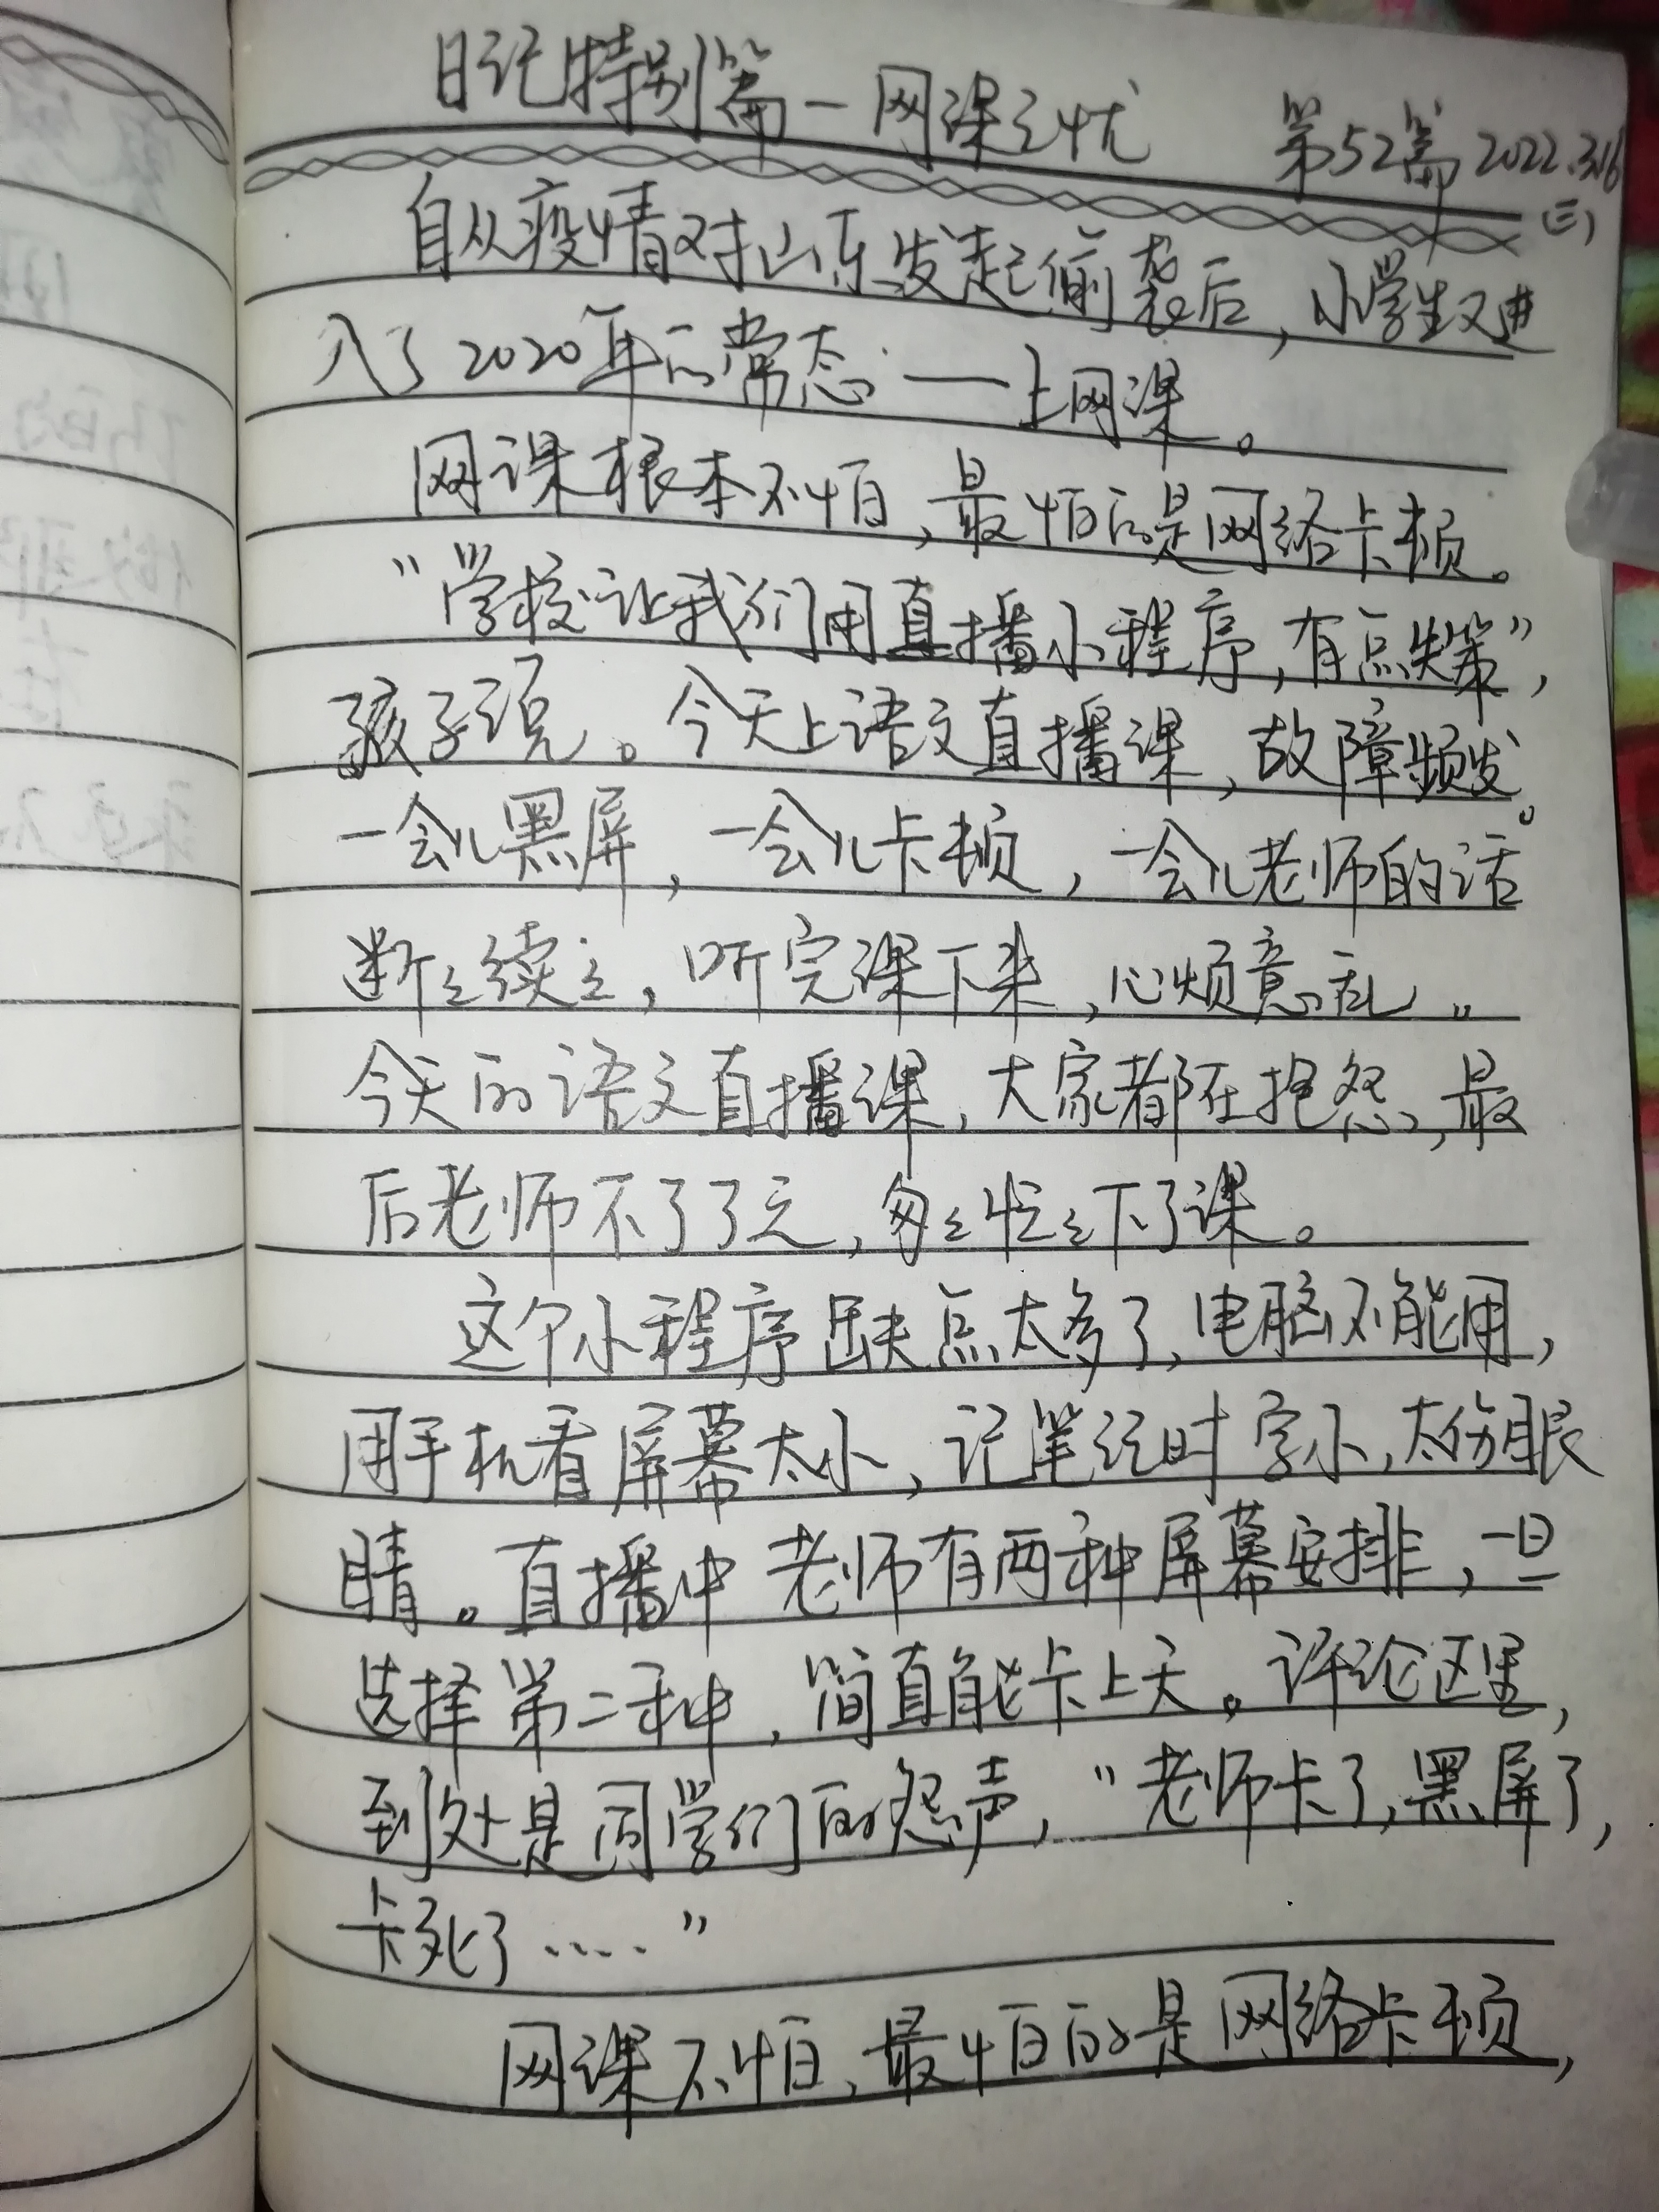 日记特别篇—网课之忧 第52篇 2022.3.16
(三)
自从疫情对山东发起偷袭后，小学生又进
入了2020年的常态——上网课。
网课根本不怕，最怕的是网络卡顿。
“学校让我们用直播小程序，有点失策”，
孩子说。今天上语文直播课，故障频发。
一会儿黑屏，一会儿卡顿，一会儿老师的话
断断续续，听完课下来，心烦意乱。
今天的语文直播课，大家都在抱怨，最
后老师不了了之，匆匆忙忙下了课。
这个小程序缺点太多了，电脑不能用，
用手机看屏幕太小，记笔记时字小，太伤眼
睛。直播中老师有两种屏幕安排，一旦
选择第二种，简直能卡上天。评论区里，
到处是同学们的怨声，“老师卡了，黑屏了，
卡死了……”
网课不怕，最怕的是网络卡顿，